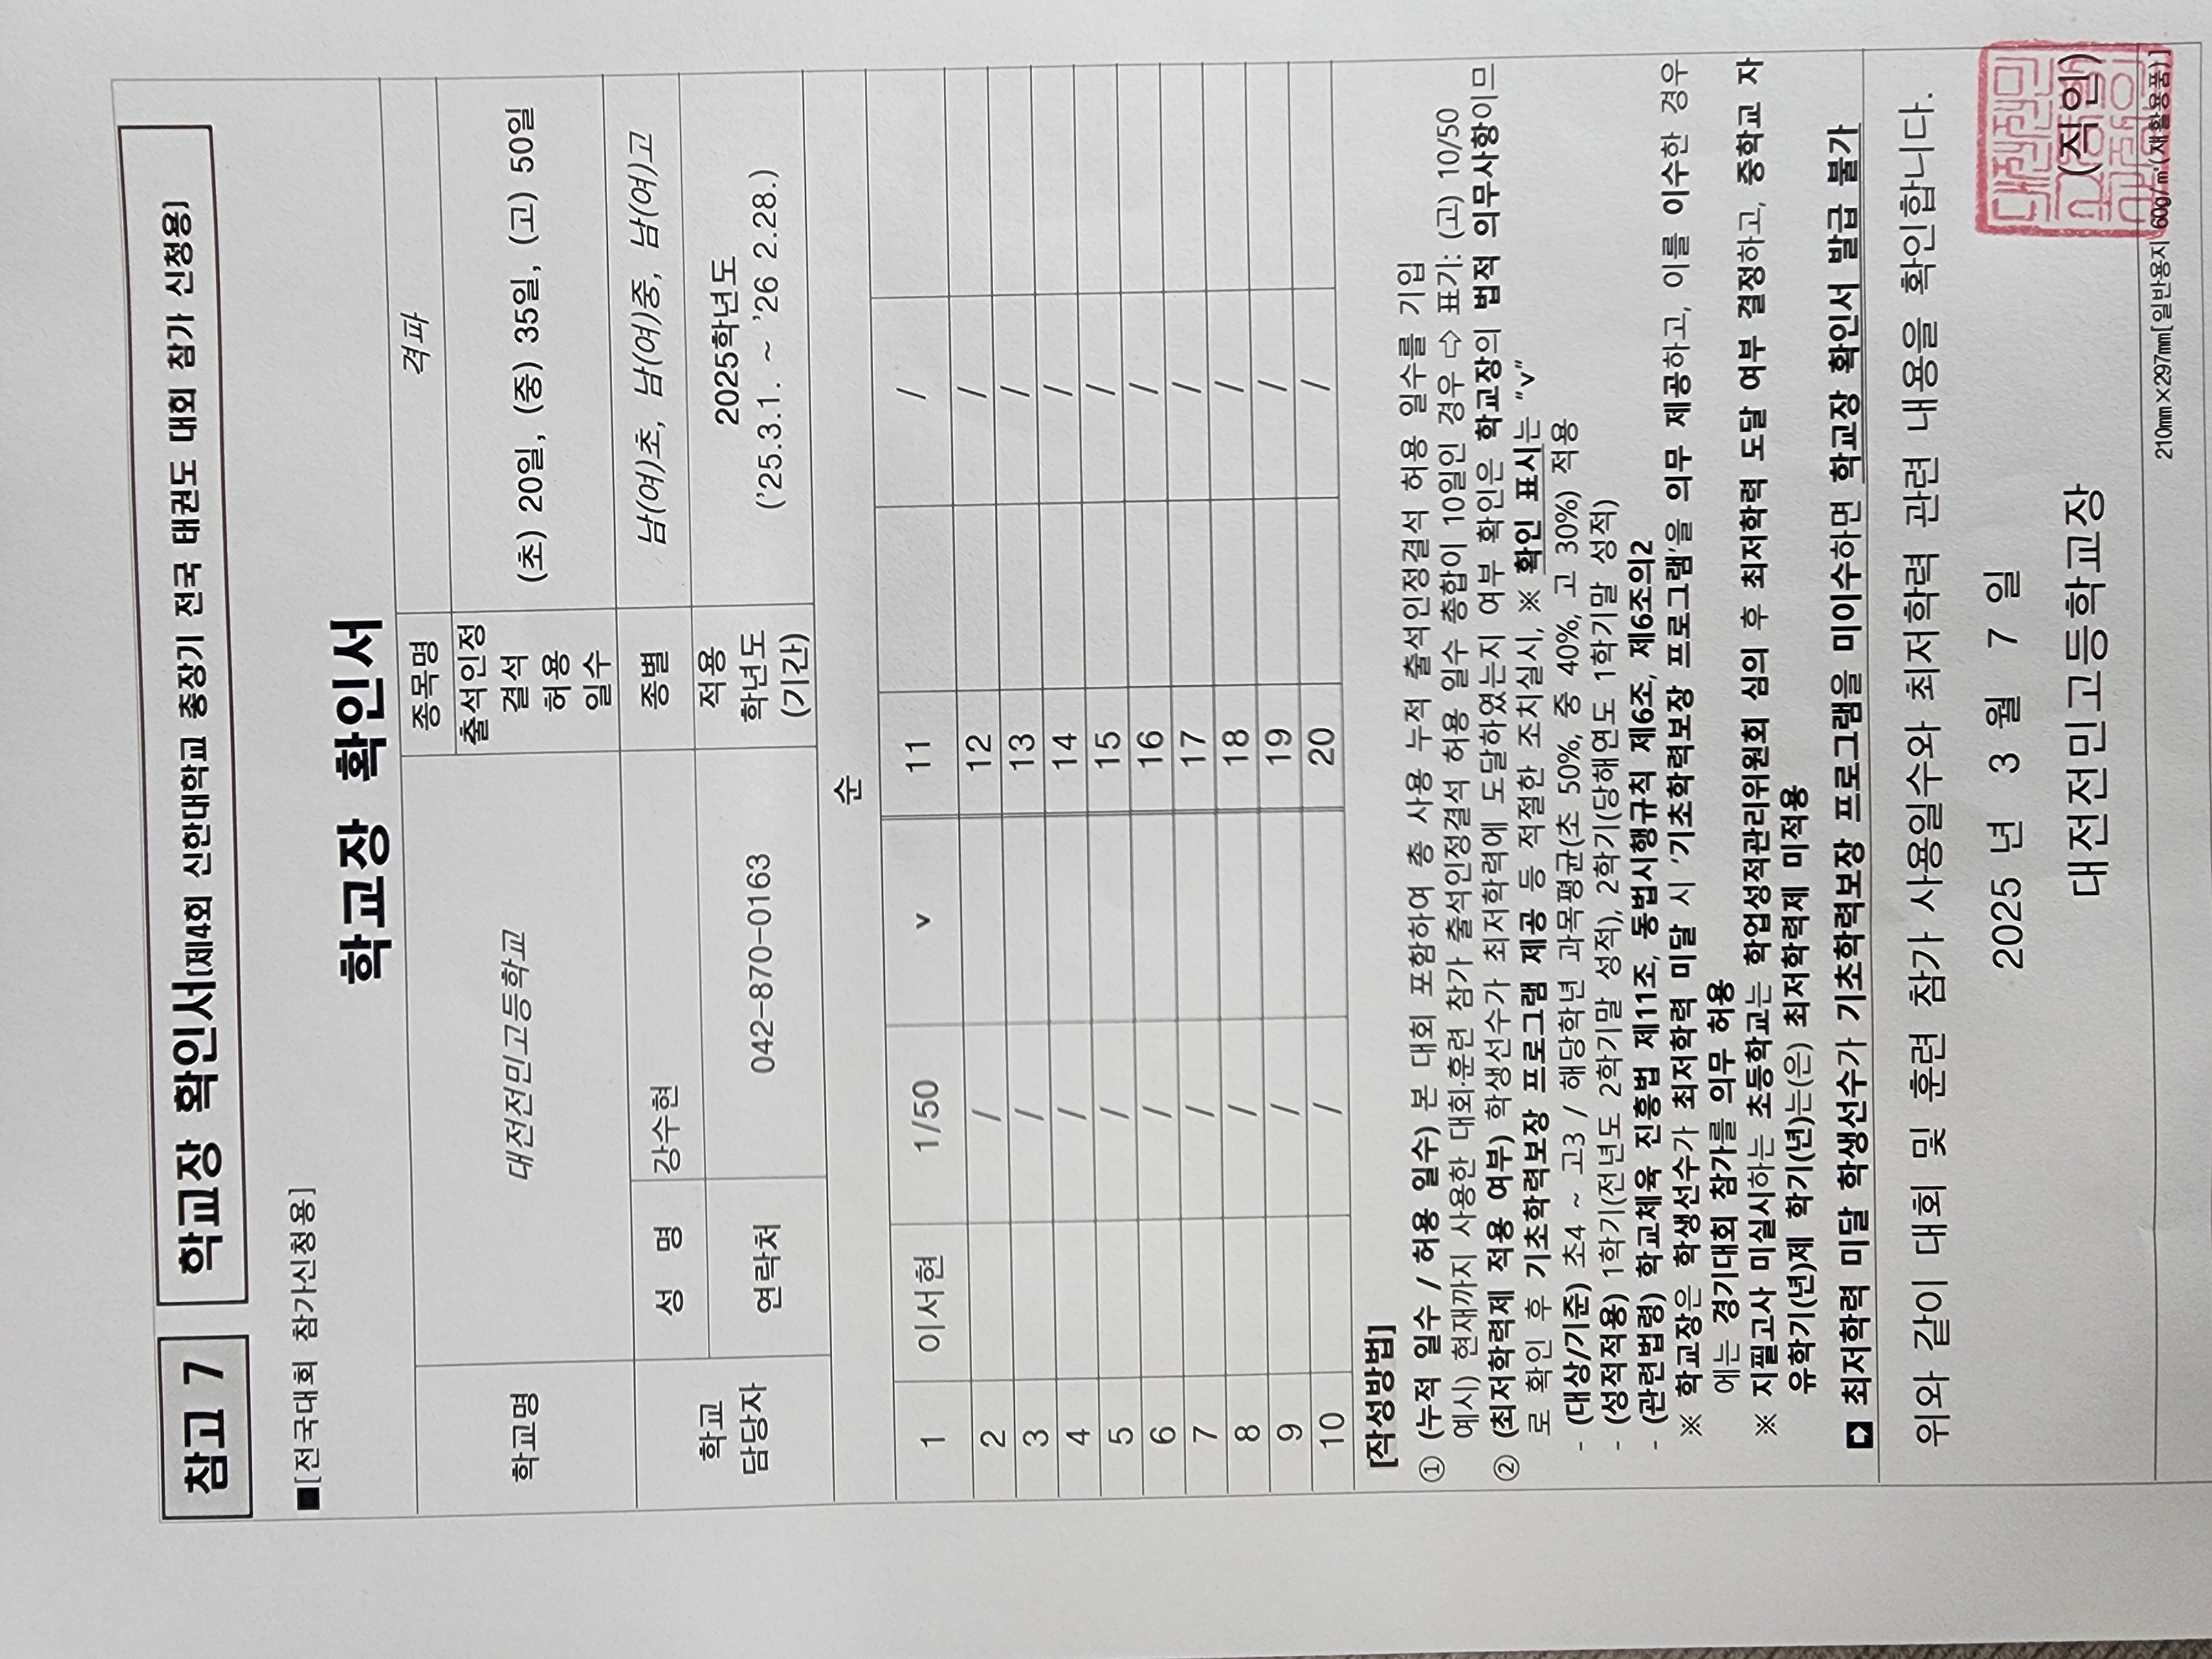 참고 7 학교장 확인서(제4회 신한대학교 총장기 전국 태권도 대회 참가 신청용)
■[전국대회 참가신청용]
학교장 확인서
학교명 대전전민고등학교 종목명 격파
출석인정 결석 허용 일수 (초) 20일, (중) 35일, (고) 50일
학교 담당자 성 명 강수현 종별 남(여)초, 남(여)중, 남(여)고
연락처 042-870-0163 적용 학년도 (기간) 2025학년도 ('25.3.1. ~ '26 2.28.)
순
1 이서현 1/50 v 11 /
2 / 12 /
3 / 13 /
4 / 14 /
5 / 15 /
6 / 16 /
7 / 17 /
8 / 18 /
9 / 19 /
10 / 20 /
[작성방법]
① (누적 일수 / 허용 일수) 본 대회 포함하여 총 사용 누적 출석인정결석 허용 일수를 기입
예시) 현재까지 사용한 대회·훈련 참가 출석인정결석 허용 일수 총합이 10일인 경우 ⇨ 표기: (고) 10/50
② (최저학력제 적용 여부) 학생선수가 최저학력에 도달하였는지 여부 확인은 학교장의 법적 의무사항이므
로 확인 후 기초학력보장 프로그램 제공 등 적절한 조치실시, ※ 확인 표시는 "v"
- (대상/기준) 초4 ~ 고3 / 해당학년 과목평균(초 50%, 중 40%, 고 30%) 적용
- (성적적용) 1학기(전년도 2학기말 성적), 2학기(당해연도 1학기말 성적)
- (관련법령) 학교체육 진흥법 제11조, 동법시행규칙 제6조, 제6조의2
※ 학교장은 학생선수가 최저학력 미달 시 '기초학력보장 프로그램'을 의무 제공하고, 이를 이수한 경우
에는 경기대회 참가를 의무 허용
※ 지필고사 미실시하는 초등학교는 학업성적관리위원회 심의 후 최저학력 도달 여부 결정하고, 중학교 자
유학기(년)제 학기(년)는(은) 최저학력제 미적용
최저학력 미달 학생선수가 기초학력보장 프로그램을 미이수하면 학교장 확인서 발급 불가
위와 같이 대회 및 훈련 참가 사용일수와 최저학력 관련 내용을 확인합니다.
2025 년 3 월 7 일
대전전민고등학교장 (직인)
210mm×297mm[일반용지 60g/㎡(재활용품)]